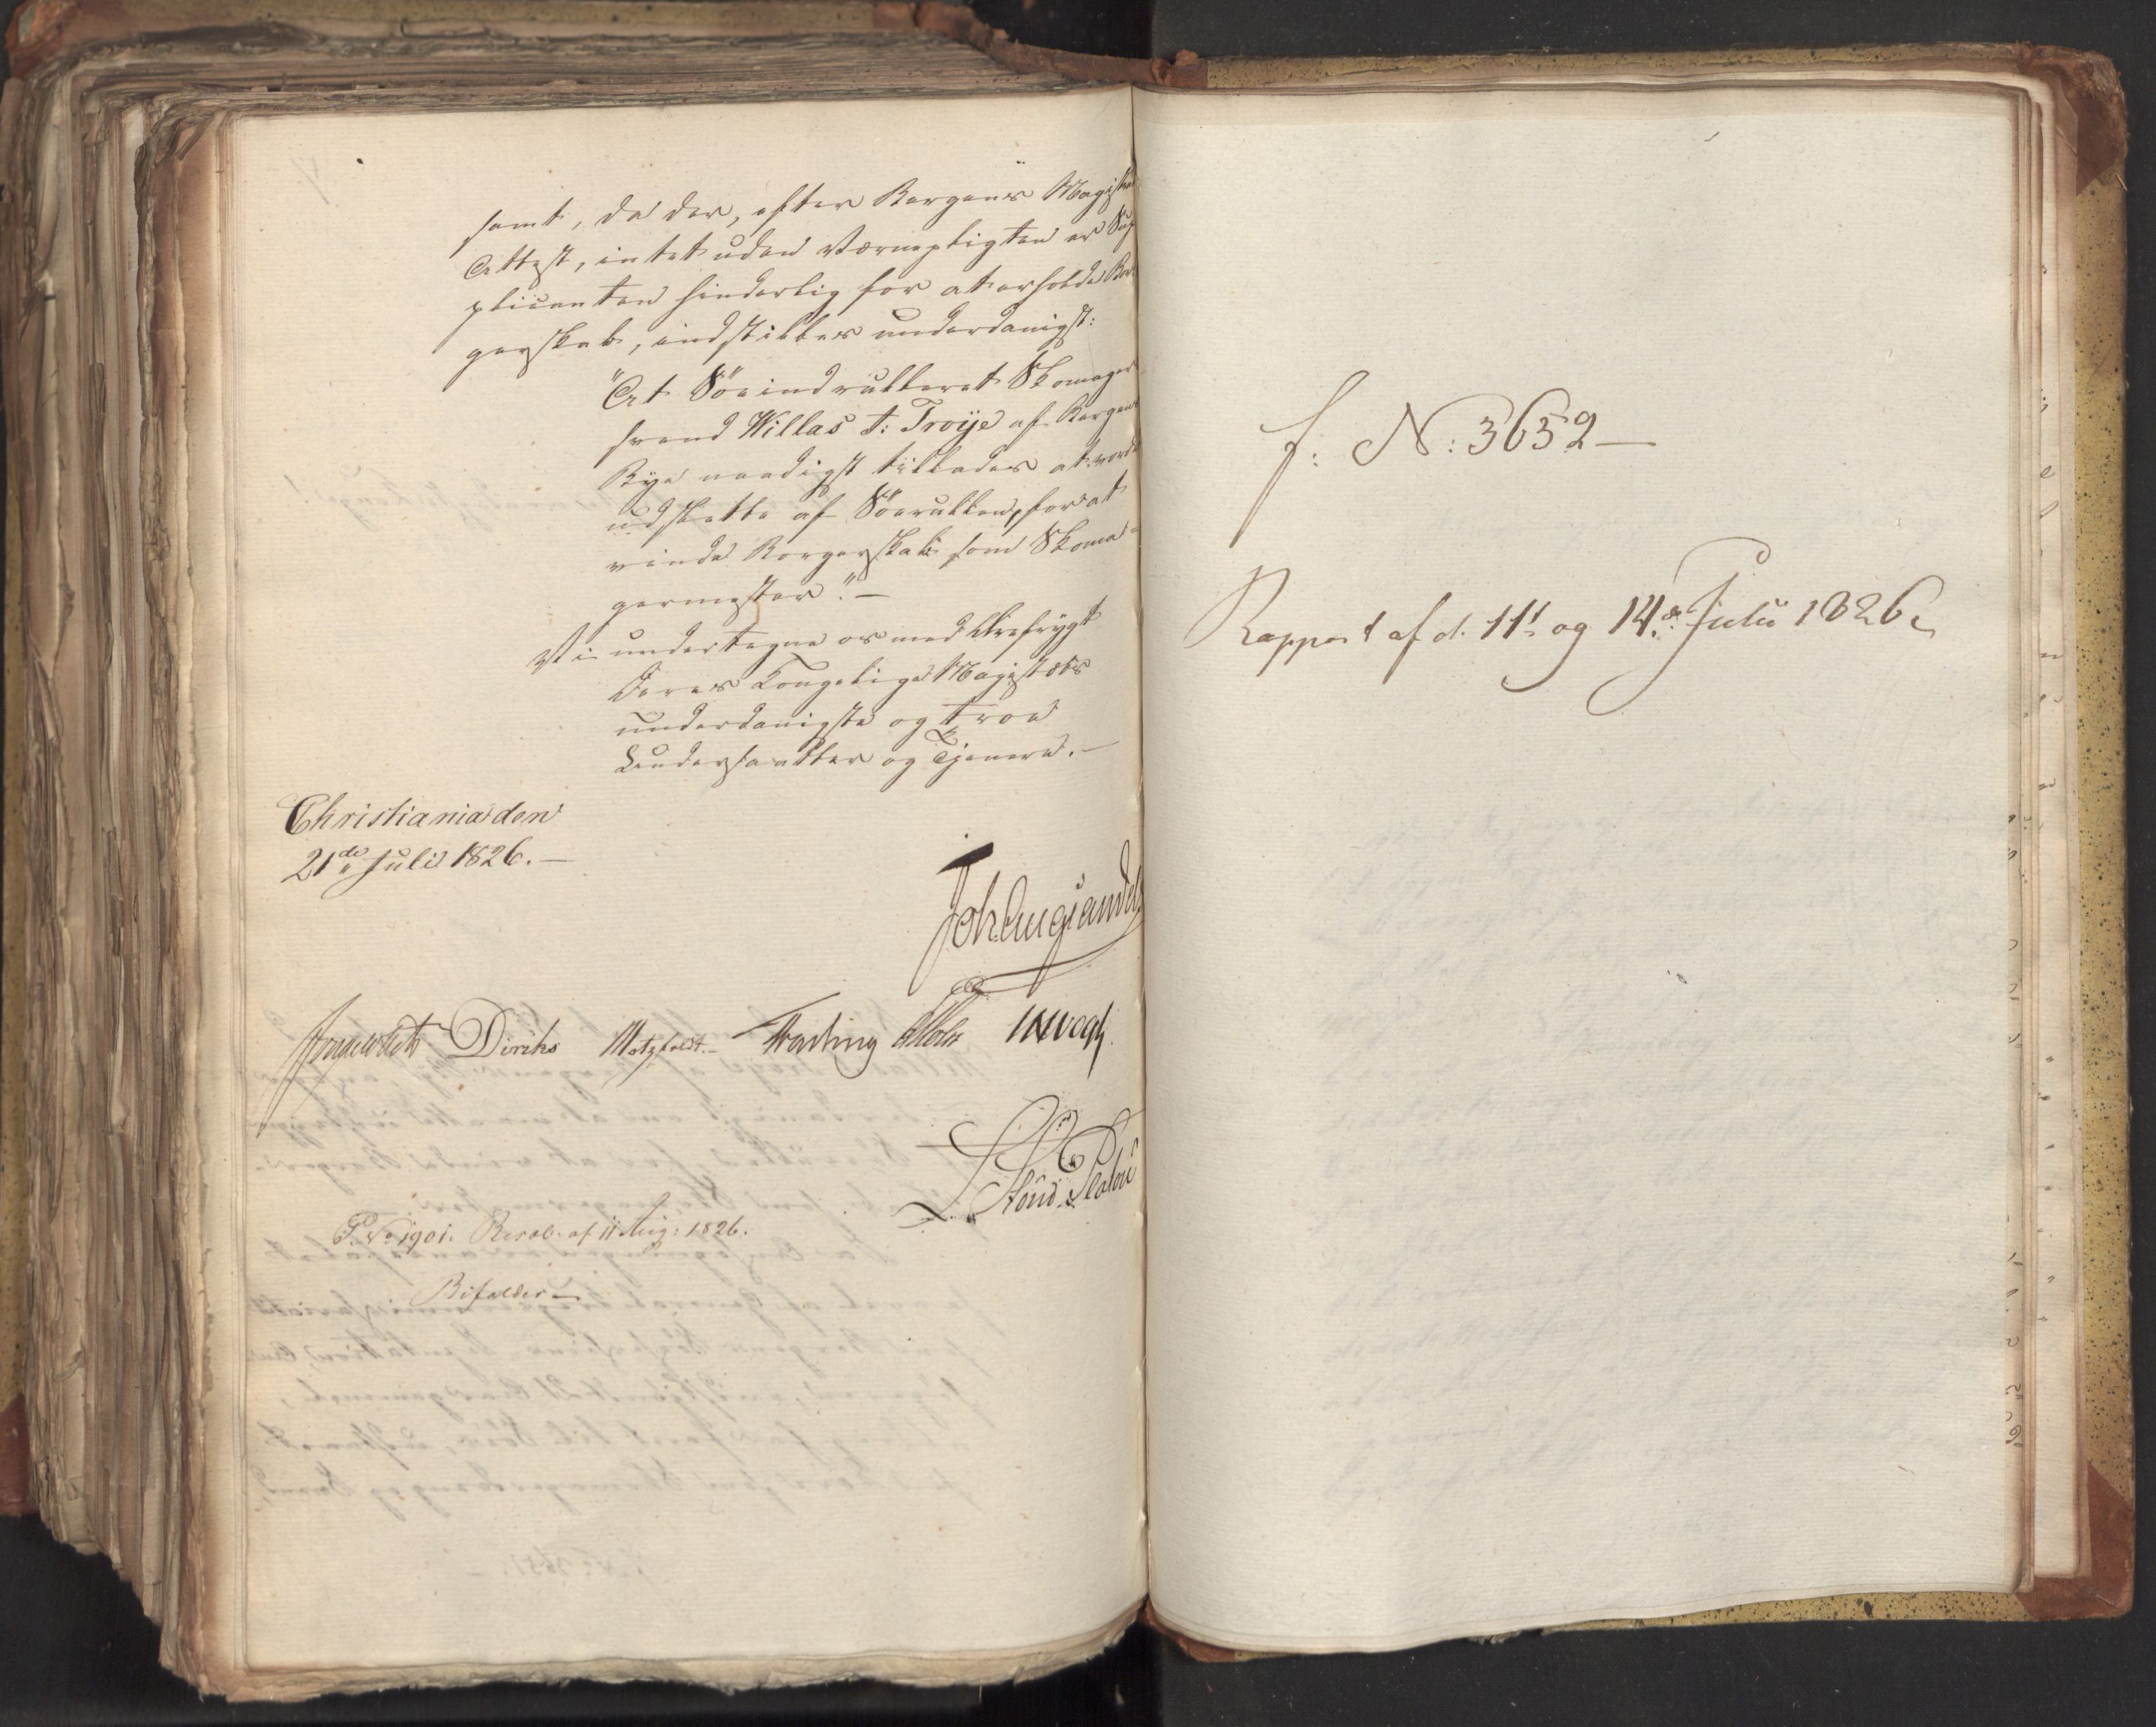 samt, da der, efter Bergens Magistrats
Attest, intet uden Værnepligten er Sup
plicanten hinderlig for at erholde Bor
gerskab, indstilles underdanigst:
"At Söeindrulleret Skomager
svend Willas T: Troije af Bergens
Bye naadigst tillades at vorde
udslettet af Söerullen, for at
vinde Borgerskab som Skoma=
germester". —
Vi undertegne os med Ærefrygt
Deres Kongelige Majestæts
underdanigste og troe
Undersaatter og Tjenere. —
Christiania den
21de Juli 1826. —
Joh Aug Sandels
Diriks Motzfeldt Treschow Holst
P. No 1901. Resol. af 11 Aug: 1826.
Bifaldes —
f: N: 3652 —
Rapport af d. 11t og 14de Julii 1826